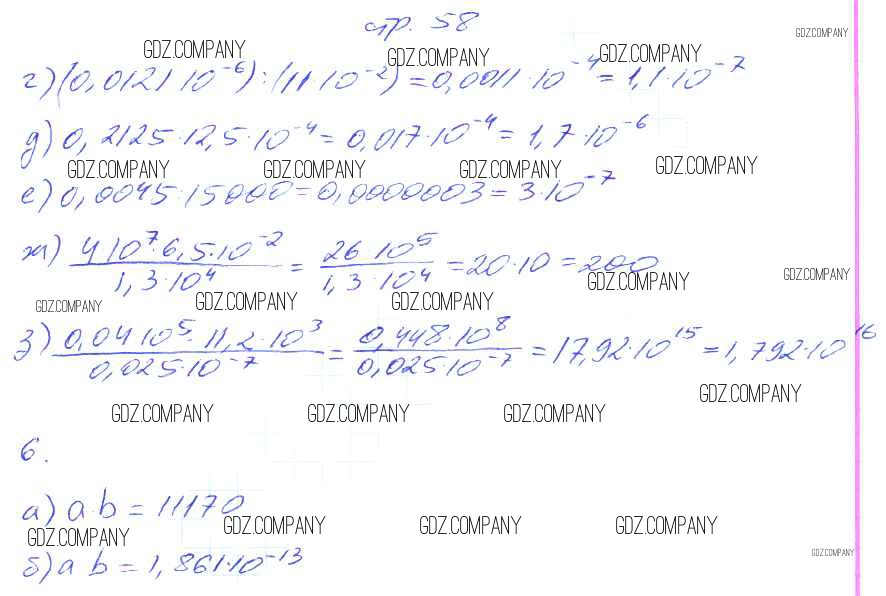 стр. 58
GDZ.COMPANY
GDZ.COMPANY GDZ.COMPANY GDZ.COMPANY
г) (0,0121·10⁻⁶) : (11·10⁻²) = 0,0011·10⁻⁴ = 1,1·10⁻⁷
д) 0,2125:12,5·10⁻⁴ = 0,017·10⁻⁴ = 1,7·10⁻⁶
GDZ.COMPANY GDZ.COMPANY GDZ.COMPANY GDZ.COMPANY
е) 0,0045:15000 = 0,0000003 = 3·10⁻⁷
ж) 4·10⁷·6,5·10⁻² / 1,3·10⁴ = 26·10⁵ / 1,3·10⁴ = 20·10 = 200
GDZ.COMPANY GDZ.COMPANY
GDZ.COMPANY GDZ.COMPANY GDZ.COMPANY
з) 0,04·10⁵·11,2·10³ / 0,025·10⁻⁷ = 0,448·10⁸ / 0,025·10⁻⁷ = 17,92·10¹⁵ = 1,792·10¹⁶
GDZ.COMPANY GDZ.COMPANY GDZ.COMPANY GDZ.COMPANY
6.
а) a·b = 11170
GDZ.COMPANY GDZ.COMPANY GDZ.COMPANY GDZ.COMPANY
б) a b = 1,861·10⁻¹³
GDZ.COMPANY